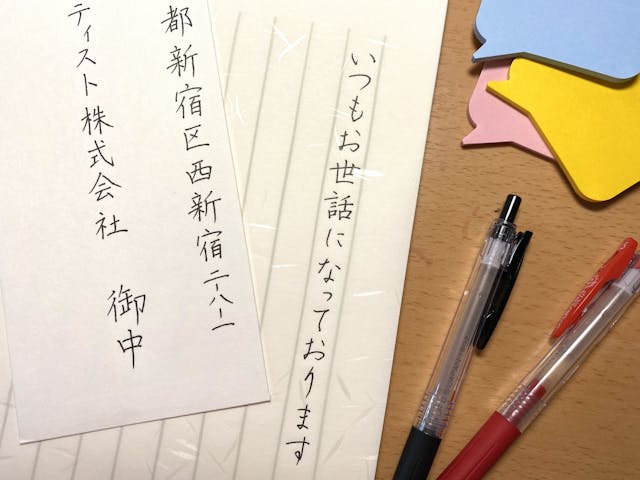 いつもお世話になっております
都新宿区西新宿二-八-一
ティスト株式会社 御中